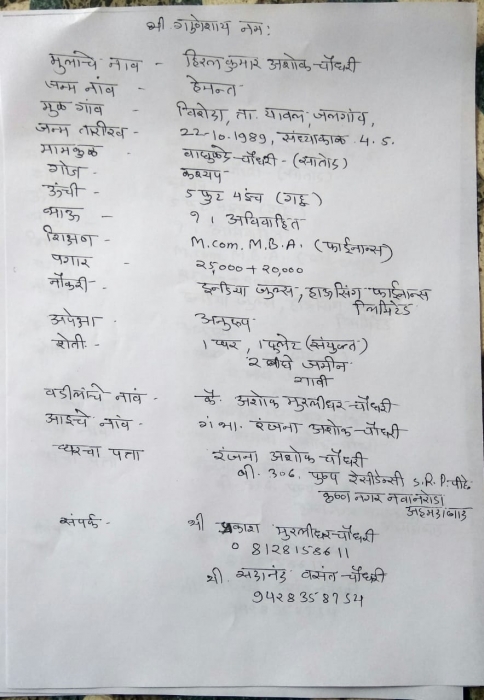 श्री गणेशाय नम:
मुलाचे नाव - हिरलकुमार अशोक चौधरी
जन्म नांव - हेमन्त
मुळ गांव - ता. यावल, जळगांव,
जन्म तारीख - 22-10-1989, संध्याकाळ 4.5.
मामकुळ - चौधरी -
गोत्र - कश्यप
ऊंची - 5 फुट 4 इंच
भाऊ - १। अविवाहित
शिक्षण - M.com. M.B.A. (फाईनान्स)
पगार - २५000 + २0,000
नौकरी - इन्डिया हाऊसिंग फाईनान्स
लिमिटेड
अपेक्षा - अनुरूप
शेती - १ घर, १ फ्लेट (संयुक्त)
२ बीघे जमीन
गावी
वडीलांचे नांव - कै. अशोक मुरलीधर चौधरी
आईचे नांव - गं.भा. रंजना अशोक चौधरी
घरचा पता रंजना अशोक चौधरी
बी. 306, पुष्प रेसीडेन्सी S.R.P.
कृष्ण नगर नवानरोडा
अहमदाबाद
संपर्क - श्री प्रकाश मुरलीधर चौधरी
0 8128158611
श्री. सदानंद वसंत चौधरी
9428358754